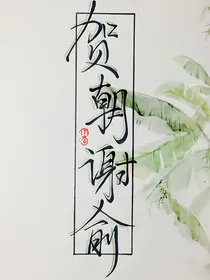 贺朝谢俞